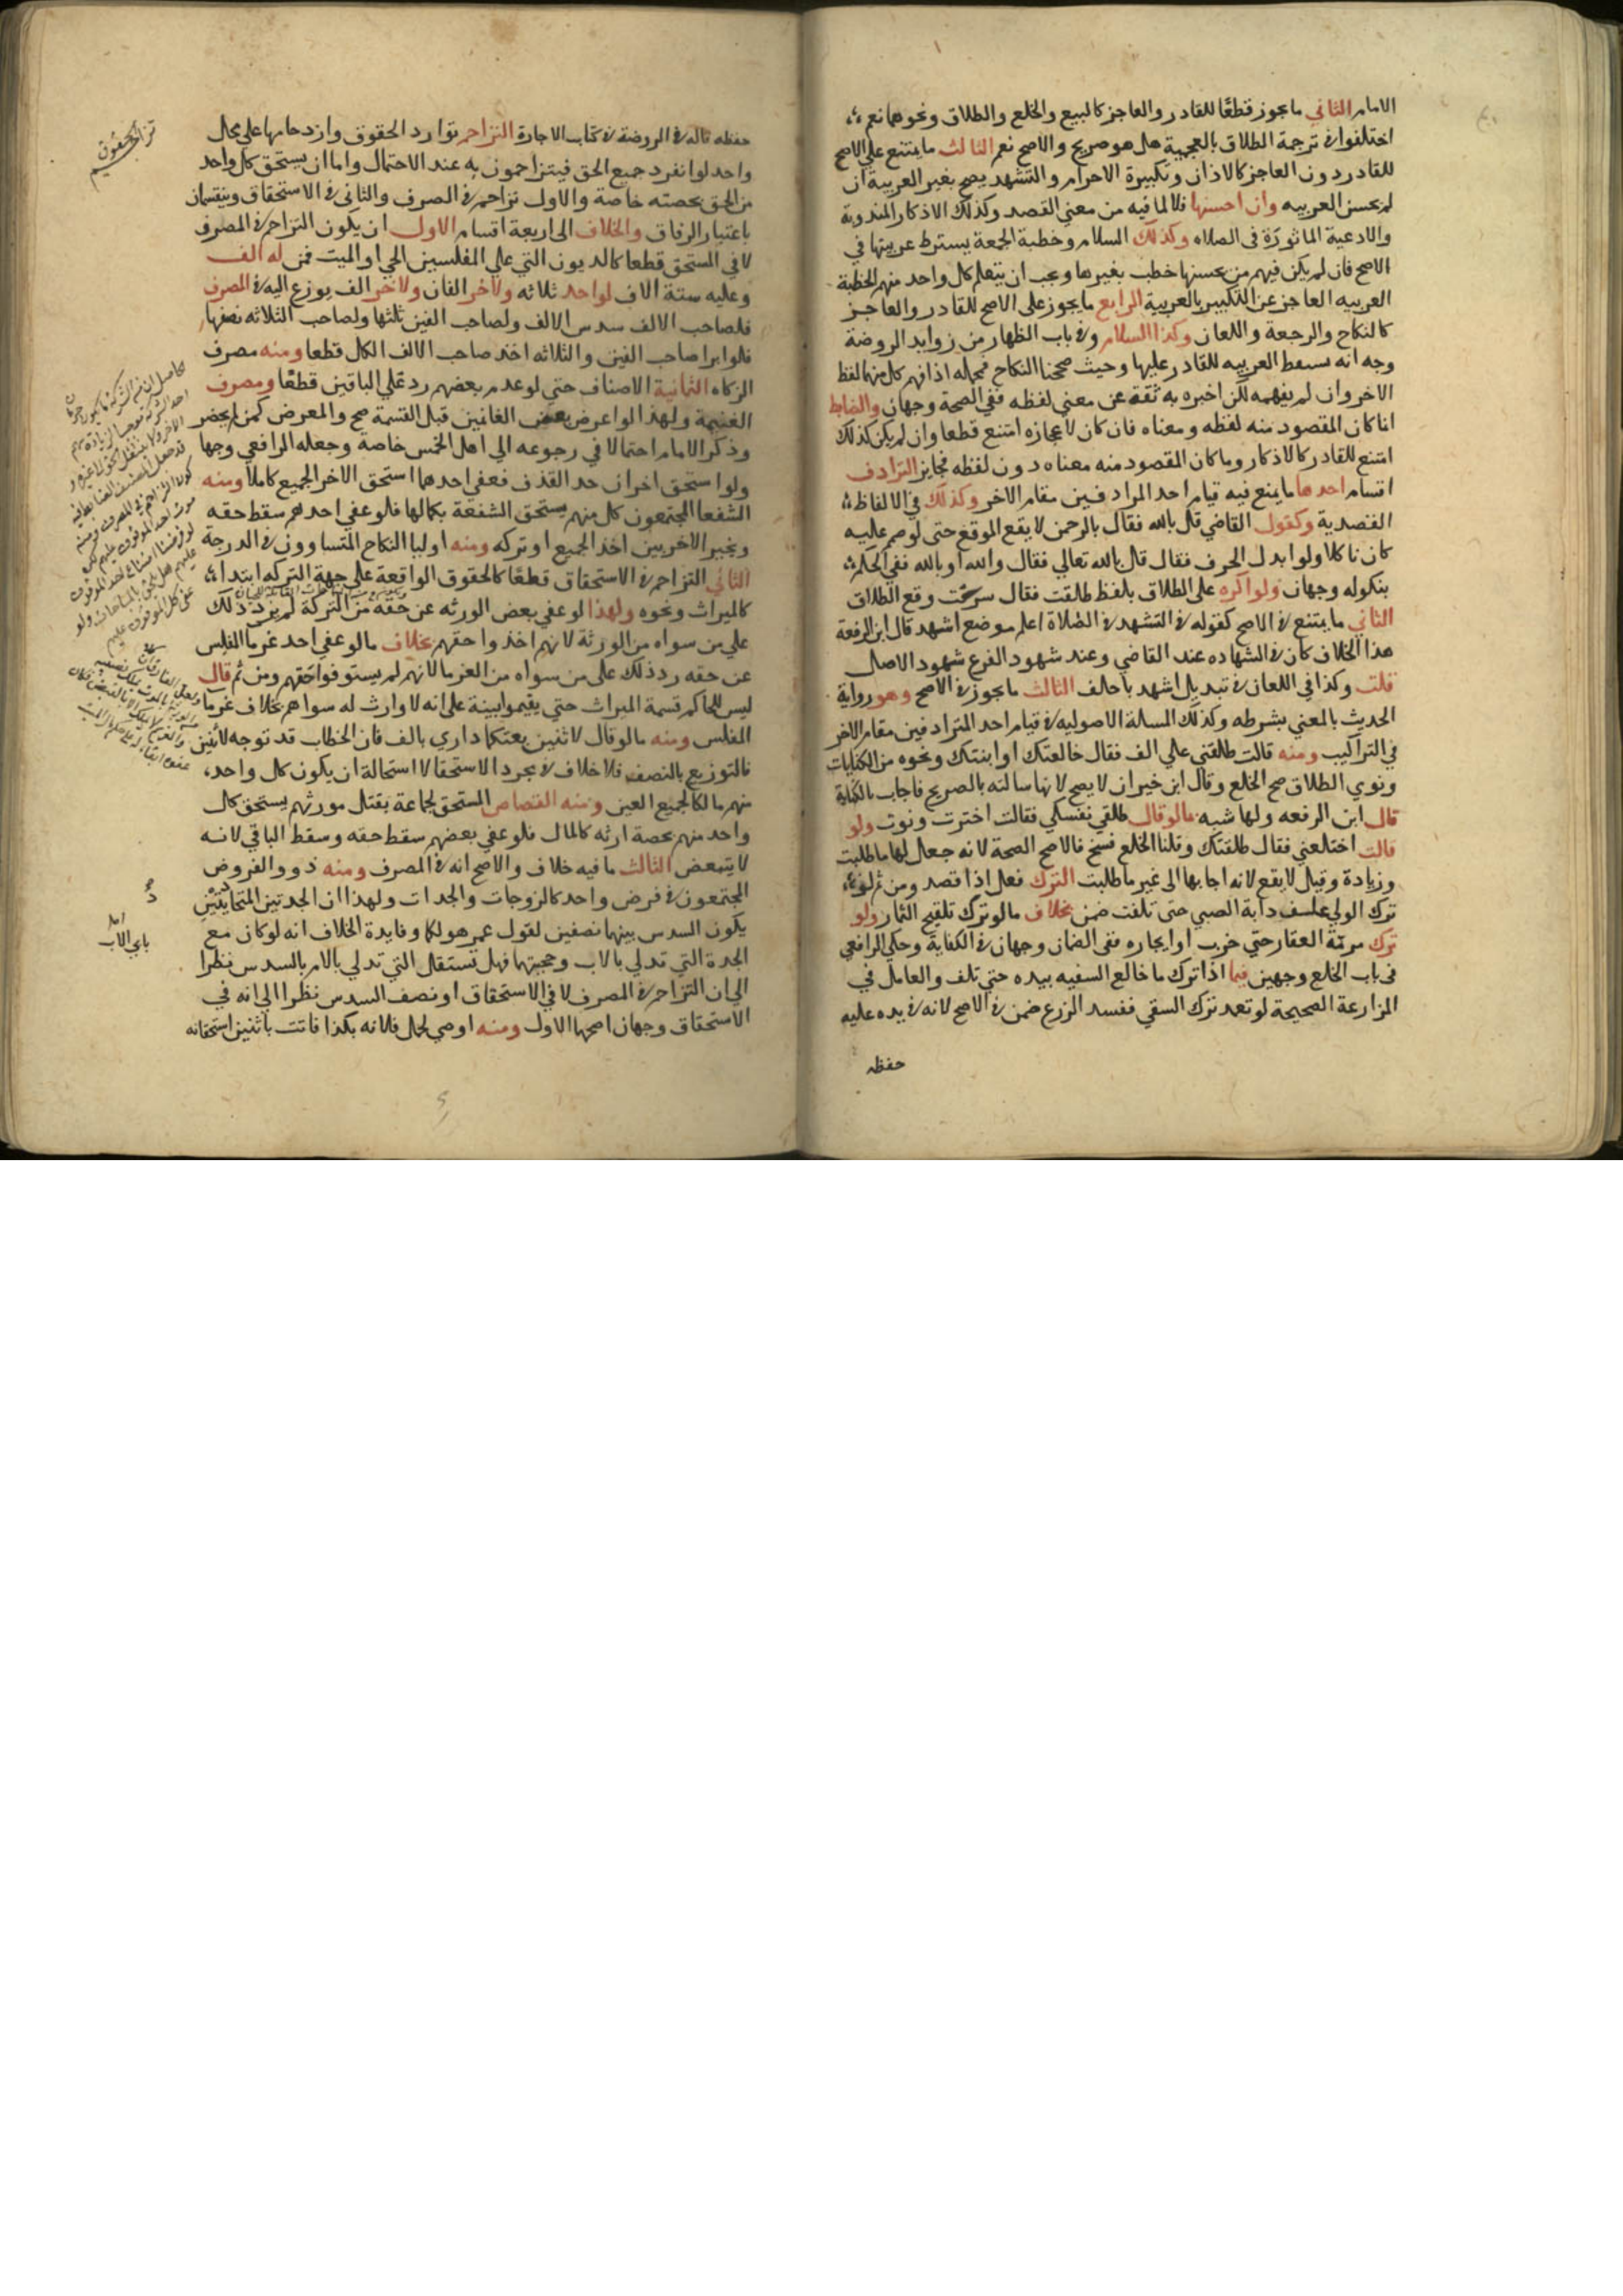 الامام الثاني ما يجوز قطعًا للقادر والعاجز كالبيع والخلع والطلاق ونحوها نعم
اختلفوا في ترجمة الطلاق بالعجمية هل هو صريح والاصح نعم الثالث ما يمتنع علي الاصح
للقادر دون العاجز كالاذان وتكبيرة الاحرام والتشهد يصح بغير العربيه ان
لم يحسن العربيه وان احسنها فلا لما فيه من معني القصد وكذلك الاذكار المندوبة
والادعية الماثورة في الصلاه وكذلك السلام وخطبة الجمعة يسترط عربيتها في
الاصح فان لم يكن فيهم من يحسنها خطب بغيرها ويجب ان يتعلم كل واحد منهم الخطبة
العربيه العاجز عن التكبير بالعربية الرابع ما يجوز على الاصح للقادر والعاجز
كالنكاح والرجعة واللعان وكذا السلام وفي باب الظهار من زوايد الروضة
وجه انه سقط العربيه للقادر عليها وحيث صححنا النكاح فمحله اذا فهم كل منهما لفظ
الاخر وان لم يفهمه لكن اخبره به ثقة عن معني لفظه ففي الصحة وجهان والضابط
ان ما كان المقصود منه لفظه ومعناه فان كان لاعجازه امتنع قطعا وان لم يكن كذلك
امتنع للقادر كالاذكار وما كان المقصود منه معناه دون لفظه فجايز الترادف
اقسام احدها ما يمنع فيه قيام احد المرادفين مقام الاخر وكذلك في الالفاظ
القصدية وكقول القاضي قل بالله فقال بالرحمن لا يقع الموقع حتى لو صمم عليه
كان ناكلا ولو ابدل الحرف فقال قل بالله تعالي فقال والله او بالله ففي الحكم
بنكوله وجهان ولو اكره على الطلاق بلفظ طلقت فقال سرحت وقع الطلاق
الثاني ما يمتنع في الاصح كقوله في التشهد في الصلاة اعلم موضع اشهد قال ابن الرفعة
هذا الخلاف كان في الشهاده عند القاضي وعند شهود الفرع شهود الاصل
قلت وكذا في اللعان في تبديل اشهد باحلف الثالث ما يجوز في الاصح وهو رواية
الحديث بالمعني بشرطه وكذلك المسالة الاصوليه في قيام احد المترادفين مقام الاخر
في التراكيب ومنه قالت طلقتني علي الف فقال خالعتك او ابنتك ونحوه من الكنايات
ونوي الطلاق صح الخلع وقال ابن خيران لا يصح لانها سالته بالصريح فاجاب بالكناية
قال ابن الرفعه ولها شبه مالو قال طلقي نفسكي فقالت اخترت ونوت ولو
قالت اختلعني فقال طلقتك وقلنا الخلع فسخ فالاصح الصحة لانه جعل لها ما طلبت
وزيادة وقيل لا يقع لانه اجابها الى غير ما طلبت الترك فعل اذا قصد ومن ثم لو
ترك الولي علف دابة الصبي حتى تلفت ضمن بخلاف مالو ترك تلقيح الثمار ولو
ترك مرمة العقار حتي خرب او ايجاره ففي الضمان وجهان في الكفاية وحكي الرافعي
في باب الخلع وجهين فيما اذا ترك ما خالع السفيه بيده حتي تلف والعامل في
المزارعة الصحيحة لو تعمد ترك السقي ففسد الزرع ضمن في الاصح لانه في يده عليه
حفظه
حفظه قاله في الروضة في كتاب الاجارة التزاحم توارد الحقوق وازدحامها على محال
واحد لو انفرد جميع الحق فيتزاحمون به عند الاحتمال واما ان يستحق كل واحد
من الحق بحصته خاصة والاول تزاحم في الصرف والثاني في الاستحقاق وينقسمان
باعتبار الوفاق والخلاف الى اربعة اقسام الاول ان يكون التزاحم في المصرف
لا في المستحق قطعا كالديون التي علي المفلسين الحي او الميت فمن له الف
وعليه ستة الاف لواحد ثلاثه ولاخر الفان ولاخر الف يوزع اليه في الصرف
فلصاحب الالف سدس الالف ولصاحب الفين ثلثها ولصاحب الثلاثه نصفها
فلو ابرا صاحب الفين والثلاثه اخذ صاحب الالف الكل قطعا ومنه مصرف
الزكاه الثمانية الاصناف حتي لو عدم بعضهم رد علي الباقين قطعًا ومصرف
الغنيمة ولهذا لو اعرض بعض الغانمين قبل القسمة صح والمعرض كمن لم يحضر
وذكر الامام احتمالا في رجوعه الي اهل الخمس خاصة وجعله الرافعي وجها
ولو استحق اخوان حد القذف فعفي احدهما استحق الاخر الجميع كاملا ومنه
الشفعا المجتمعون كل منهم يستحق الشفعة بكمالها فلو عفي احدهم سقط حقه
ويخير الاخر بين اخذ الجميع او تركه ومنه اوليا النكاح المتساوون في الدرجة
الثاني التزاحم في الاستحقاق قطعًا كالحقوق الواقعة علي جهة التركه ابتداء
كالميراث ونحوه ولهذا لو عفي بعض الورثه عن حقه من التركة لم يرد ذلك
علي من سواه من الورثة لانهم اخذوا حقهم بخلاف مالو عفي احد غرما المفلس
عن حقه رد ذلك على من سواه من الغرما لانهم لم يستوفوا حقهم ومن ثم قال
ليس للحاكم قسمة الميراث حتي يقيموا بينة على انه لا وارث له سواهم بخلاف غرما
المفلس ومنه مالو قال لاثنين بعتكما داري بالف فان الخطاب قد توجه لاثنين
فالتوزيع بالنصف فلا خلاف في مجرد الاستحقا لاستحالة ان يكون كل واحد
منهم مالكا لجميع العين ومنه القصاص المستحق لجماعة بقتل مورثهم يستحق كل
واحد منهم بحصة ارثه كالمال فلو عفي بعضهم سقط حقه وسقط الباقي لانه
لا يتبعض الثالث ما فيه خلاف والاصح انه في المصرف ومنه ذوو الفروض
المجتمعون في فرض واحد كالزوجات والجدات ولهذا ان الجدتين المتحاذيتين
يكون السدس بينهما نصفين لقول عمر هو لكما وفايدة الخلاف انه لو كان مع
الجدة التي تدلي بالاب وحجبتها فهل تستقل التي تدلي بالام بالسدس نظرا
الي ان التزاحم في المصرف لا في الاستحقاق او نصف السدس نظرا الي انه في
الاستحقاق وجهان اصحهما الاول ومنه اوصي لحمل فلانه بكذا فاتت باثنين استحقانه
تزاحم الحقوق